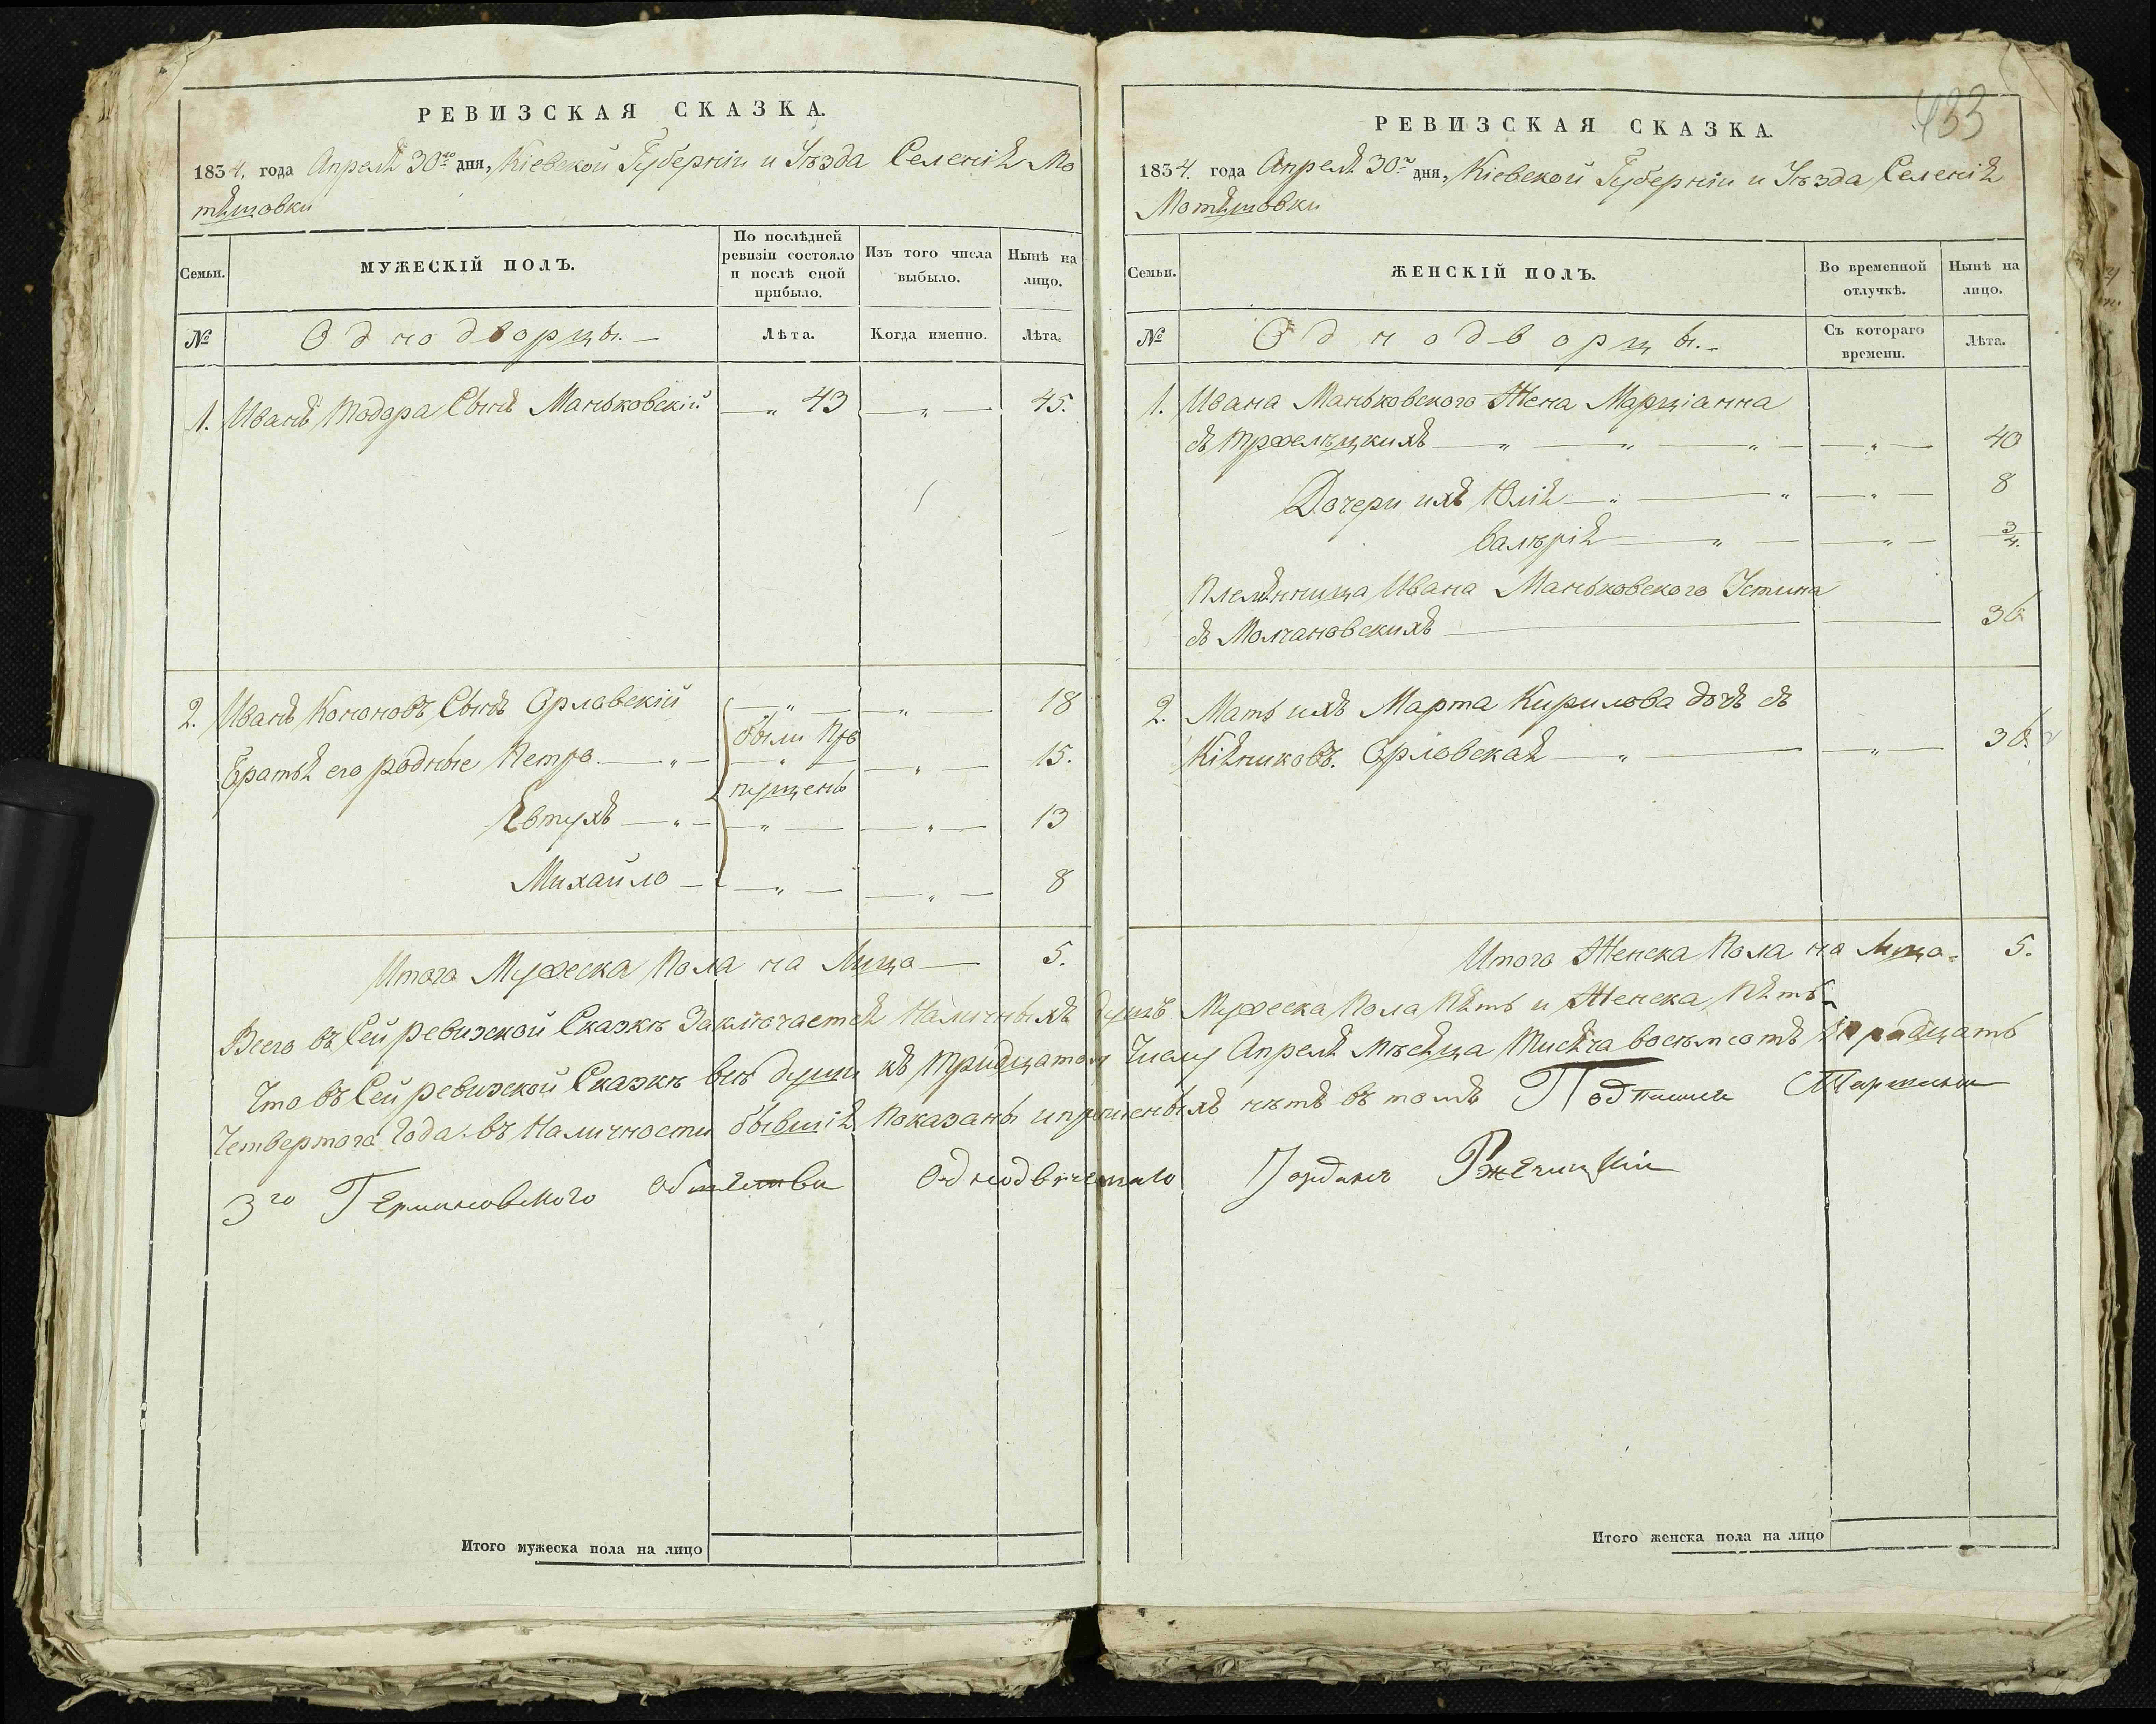 РЕВИЗСКАЯ СКАЗКА.
1834. года Апрелѣ 30го дня, Кіевской Губерніи и Уѣзда Селеніѣ Мо
тѣшовки
Семьи.
МУЖЕСКІЙ ПОЛЪ.
По послѣдней ревизіи состояло и послѣ сной прибыло.
Изъ того числа выбыло.
Нынѣ на лицо.
№
Однодворцы.
Лѣта.
Когда именно.
Лѣта.
1. Иванъ Тодора Сынъ Маньковскій 43 45.
2. Иванъ Кононовъ Сынъ Орловскій 18
были Про
Братьѣ его родные Петро 15.
пущены
Евтухъ 13
Михайло 8
Итого Мужеска Пола на Лицо 5.
433
РЕВИЗСКАЯ СКАЗКА.
1834. года Апрелѣ 30го дня, Кіевской Губерніи и Уѣзда Селеніѣ
Мотѣшовки
Семьи.
ЖЕНСКІЙ ПОЛЪ.
Во временной отлучкѣ.
Нынѣ на лицо.
№
Однодворцы.
Съ котораго времени.
Лѣта.
1. Ивана Маньковского Жена Марціанна
съ 40
Дочери ихъ Юліѣ 8
Валѣріѣ 3/4.
Племѣнница Ивана Маньковского Устина
съ Молчановскихъ 36
2. Мать ихъ Марта Кирилова дочъ съ
Орловскаѣ 36.
Итого Женска Пола на Лицо. 5.
Всего въ Сей ревизской Сказкѣ Заключаетсѣ Наличныхъ душъ Мужеска Пола Пѣть и Женска Пѣть
Что въ Сей ревизской Сказкѣ всѣ души къ Тридцатому Числу Апрелѣ Мѣсѣца Тисѣча восѣмсотъ Тридцать
Четвертого Года въ Наличности бывшіѣ Показаны и нѣтъ въ томъ
3го Однодвічешило
Итого мужеска пола на лицо
Итого женска пола на лицо